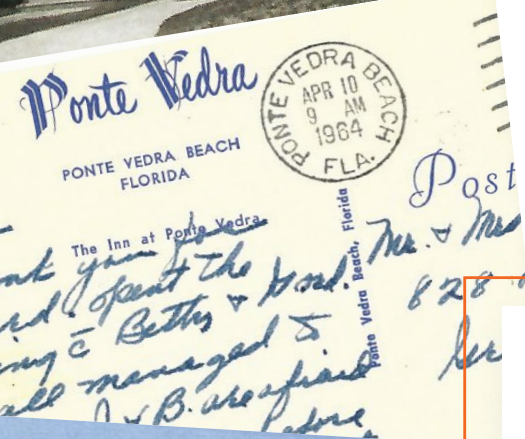 Ponte Vedra
PONTE VEDRA BEACH
FLORIDA
PONTE VEDRA BEACH
APR 10
9 AM
1964
FLA.
Post
The Inn at Ponte Vedra
Ponte Vedra Beach, Florida
you for
spent the
Betty &
all managed to
& B. are afraid
before
Mr. & Mrs
828